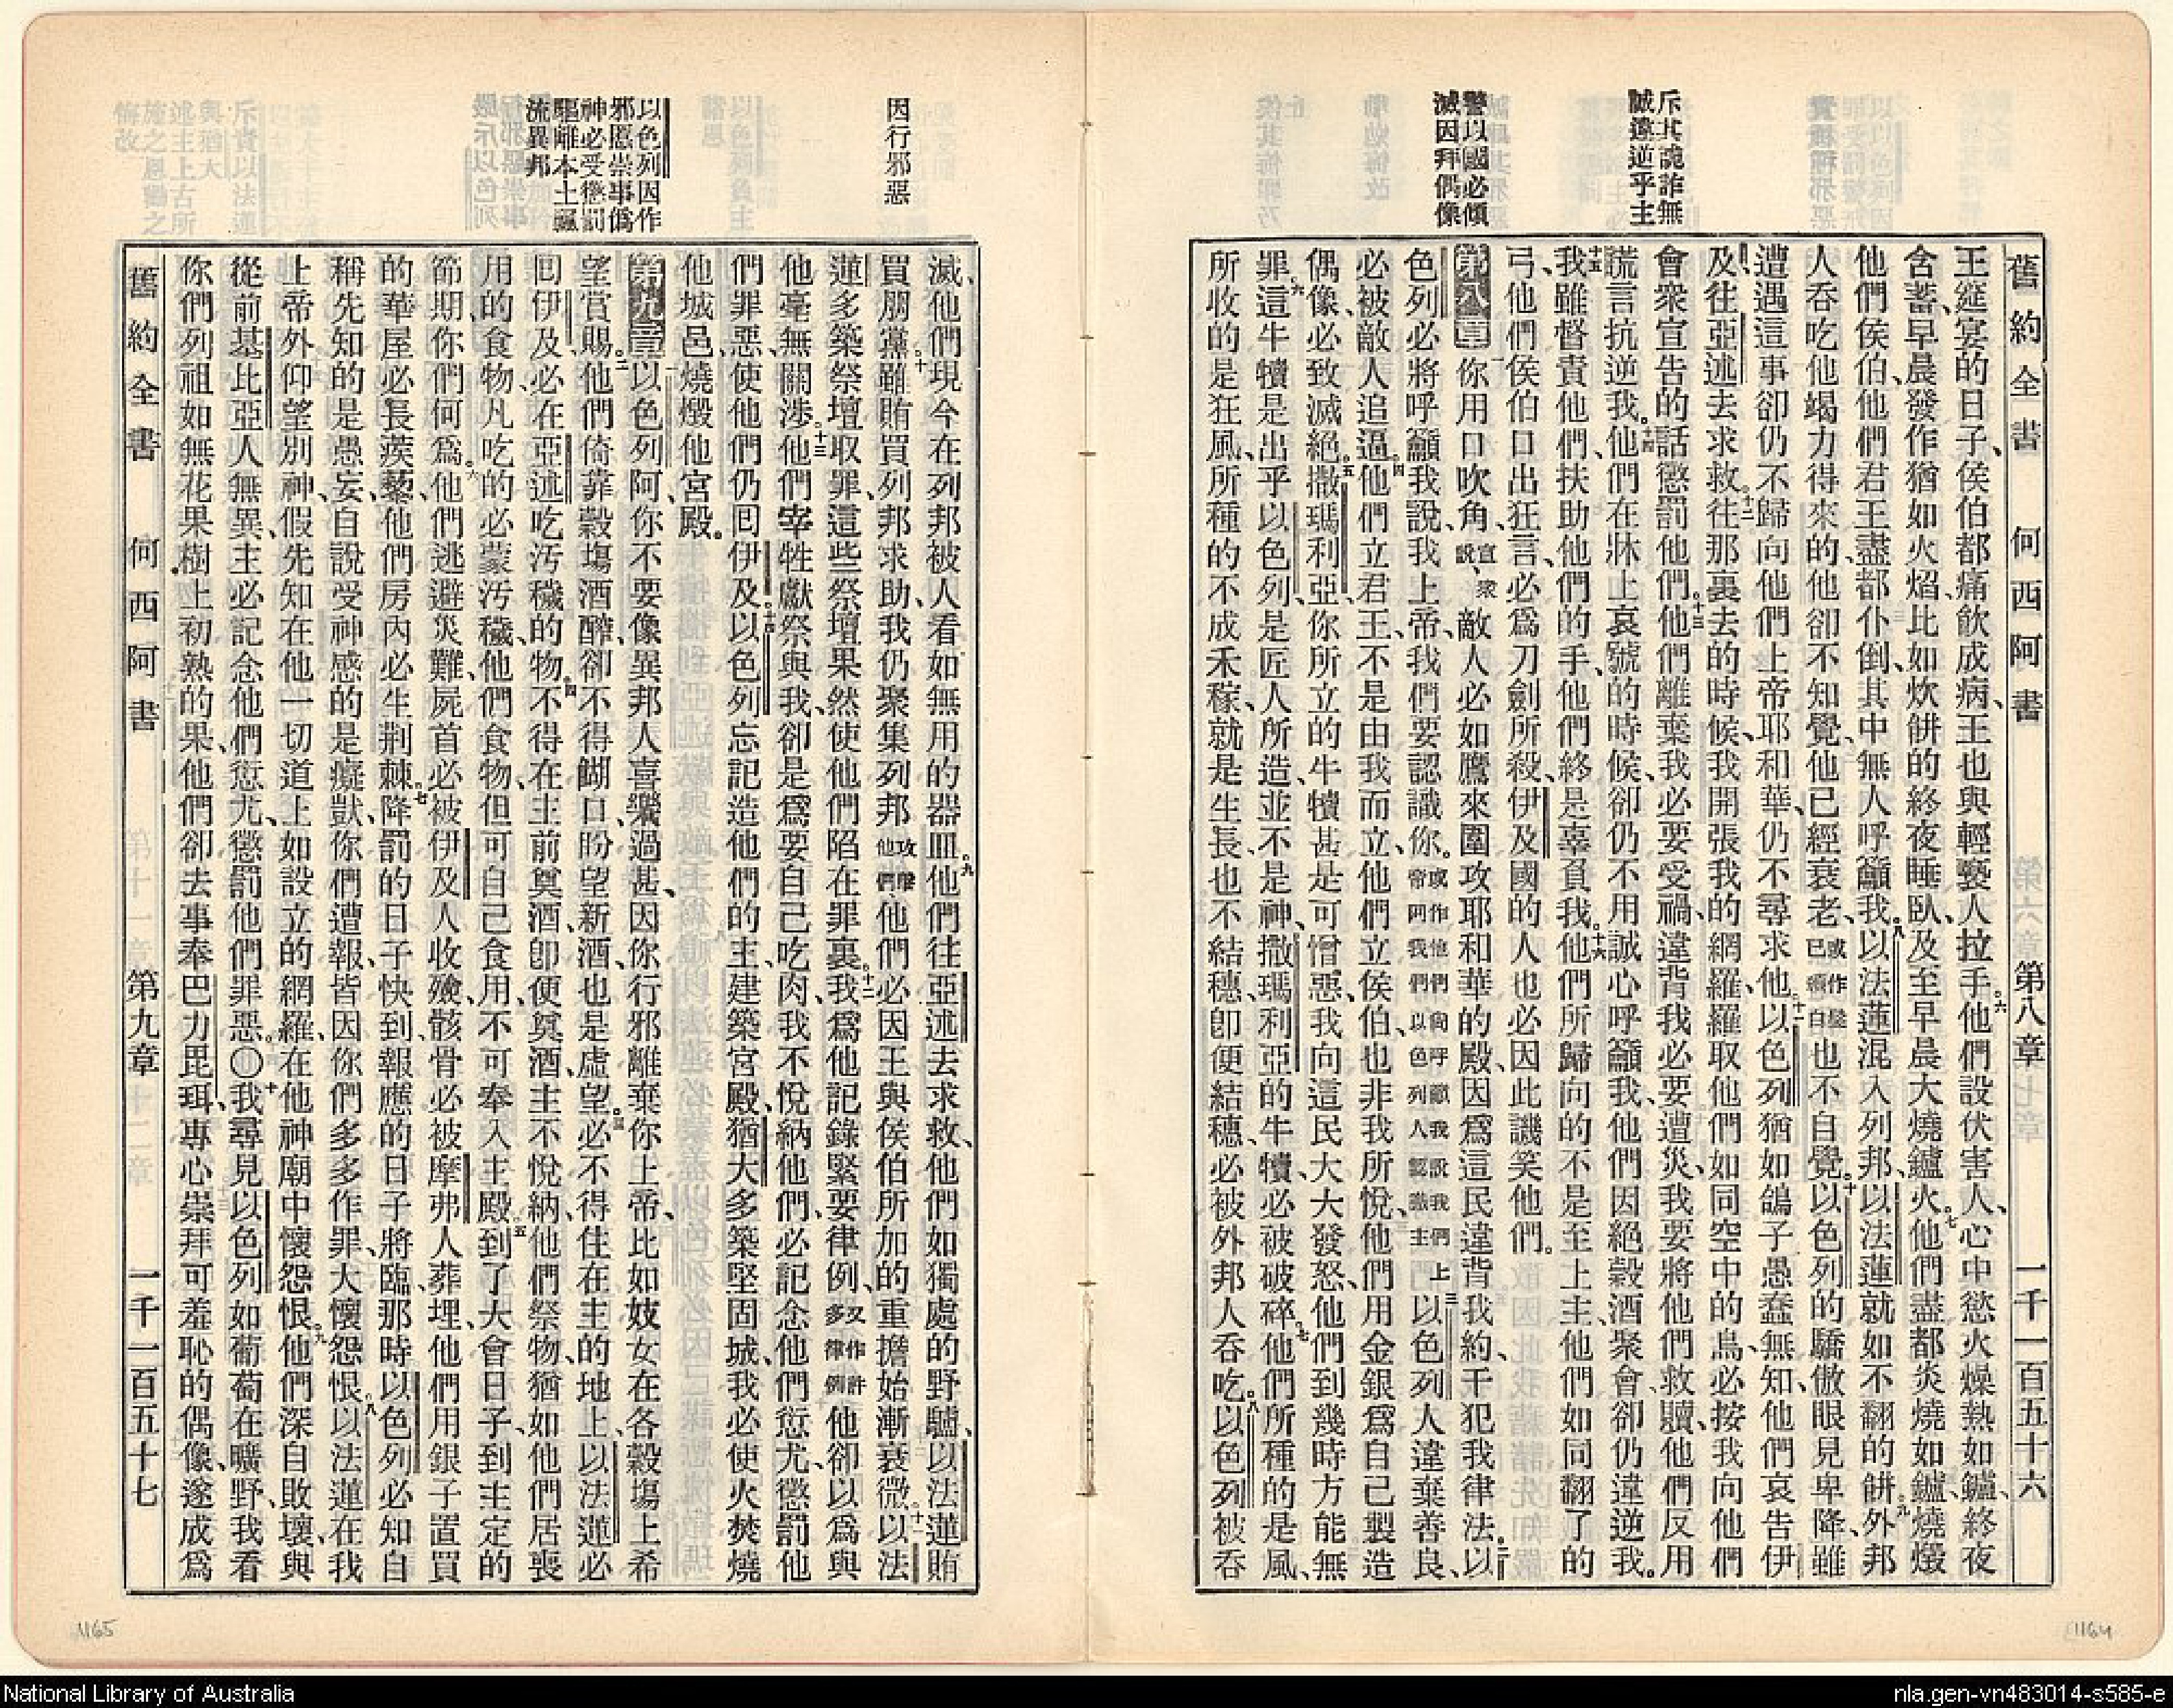 舊約全書　何西阿書　第八章　一千一百五十六
斥其詭詐無
誠違逆乎主
警以國必傾
滅因拜偶像
王筵宴的日子、侯伯都痛飲成病、王也與輕褻人拉手。六他們設伏害人、心中慾火燥熱如鑪、終夜
含蓄、早晨發作猶如火焰比如炊餅的終夜睡臥、及至早晨大燒鑪火。七他們盡都炎燒如鑪、燒燬
他們侯伯、他們君王盡都仆倒、其中無人呼籲我。八以法蓮混入列邦、以法蓮就如不翻的餅、九外邦
人吞吃他竭力得來的、他卻不知覺、他已經衰老、或作髮已頒白也不自覺。十以色列的驕傲眼見卑降、雖
遭遇這事卻仍不歸向他們上帝耶和華、仍不尋求他。十一以色列猶如鴿子愚蠢無知、他們哀告伊
及、往亞述去求救。十二往那裏去的時候、我開張我的網羅、羅取他們如同空中的鳥、必按我向他們
會衆宣告的話懲罰他們。十三他們離棄我必要受禍、違背我必要遭災、我要將他們救贖、他們反用
謊言抗逆我。十四他們在牀上哀號的時候、卻仍不用誠心呼籲我、他們因絕穀酒聚會、卻仍違逆我。
十五我雖督責他們、扶助他們的手、他們終是辜負我。十六他們所歸向的不是至上主、他們如同翻了的
弓、他們侯伯口出狂言、必爲刀劍所殺、伊及國的人也必因此譏笑他們。
第八章　一你用口吹角、宣衆說、敵人必如鷹來圍攻耶和華的殿、因爲這民違背我約、干犯我律法。二以
色列必將呼籲我說、我上帝、我們要認識你。或作他們向呼籲我說我們上帝阿我們以色列人認識主三以色列人違棄善良、
必被敵人追逼。四他們立君王、不是由我而立、他們立侯伯、也非我所悅、他們用金銀爲自己製造
偶像、必致滅絕。五撒瑪利亞、你所立的牛犢甚是可憎惡、我向這民大大發怒、他們到幾時方能無
罪。六這牛犢是出乎以色列、是匠人所造、並不是神、撒瑪利亞的牛犢、必被破碎。七他們所種的是風、
所收的是狂風、所種的不成禾稼、就是生長、也不結穗、卽便結穗、必被外邦人吞吃。八以色列被吞
因行邪惡
以色列因作
邪慝崇事僞
神必受懲罰
驅離本土飄
流異邦
滅、他們現今在列邦被人看如無用的器皿。九他們往亞述去求救、他們如獨處的野驢、以法蓮賄
買朋黨。十雖賄買列邦求助、我仍聚集列邦攻擊他們他們必因王與侯伯所加的重擔始漸衰微。十一以法
蓮多築祭壇取罪、這些祭壇果然使他們陷在罪裏。十二我爲他記錄緊要律例、又作許多律例他卻以爲與
他毫無關涉。十三他們宰牲獻祭與我、卻是爲要自己吃肉、我不悅納他們、必記念他們愆尤、懲罰他
們罪惡、使他們仍囘伊及。十四以色列忘記造他們的主、建築宮殿、猶大多築堅固城、我必使火焚燒
他城邑、燒燬他宮殿。
第九章　一以色列阿、你不要像異邦人喜樂過甚、因你行邪離棄你上帝、比如妓女在各穀塲上希
望賞賜。二他們倚靠穀塲酒醡、卻不得餬口、盼望新酒也是虛望。三必不得住在主的地上、以法蓮必
囘伊及、必在亞述吃汚穢的物。四不得在主前奠酒、卽便奠酒、主不悅納、他們祭物、猶如他們居喪
用的食物、凡吃的必蒙汚穢、他們食物、但可自己食用、不可奉入主殿。五到了大會日子、到主定的
節期、你們何爲。六他們逃避災難、屍首必被伊及人收殮、骸骨必被摩弗人葬埋、他們用銀子置買
的華屋必長蒺藜、他們房內必生荆棘。七降罰的日子快到、報應的日子將臨、那時以色列必知自
稱先知的是愚妄、自說受神感的是癡獃、你們遭報、皆因你們多多作罪、大懷怨恨。八以法蓮在我
上帝外仰望別神、假先知在他一切道上如設立的網羅、在他神廟中懷怨恨。九他們深自敗壞、與
從前基比亞人無異、主必記念他們愆尤、懲罰他們罪惡。〇十我尋見以色列如葡萄在曠野、我看
你們列祖如無花果樹上初熟的果、他們卻去事奉巴力毘珥、專心崇拜可羞恥的偶像、遂成爲
舊約全書　何西阿書　第九章　一千一百五十七
1165
1164
National Library of Australia
nla.gen-vn483014-s585-e